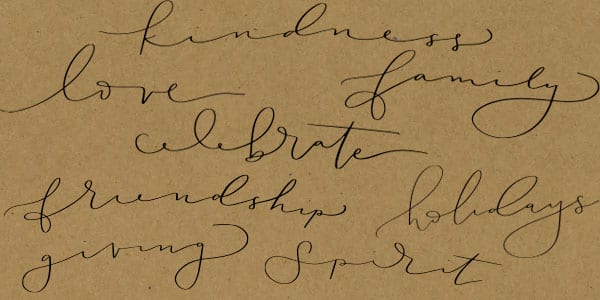 kindness
love family
celebrate
friendship holidays
giving spirit